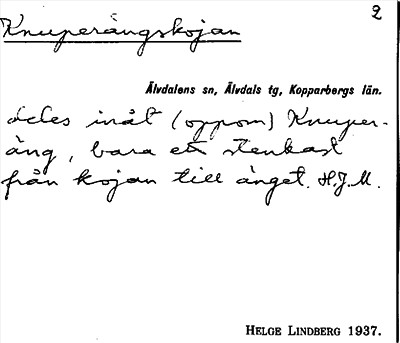 2
Knuperängskojan
Älvdalens sn, Älvdals tg, Kopparbergs län.
deles inåt (oppom) Knuper-
äng, bara ett stenkast
från kojan till änget. H.J.M.
HELGE LINDBERG 1937.